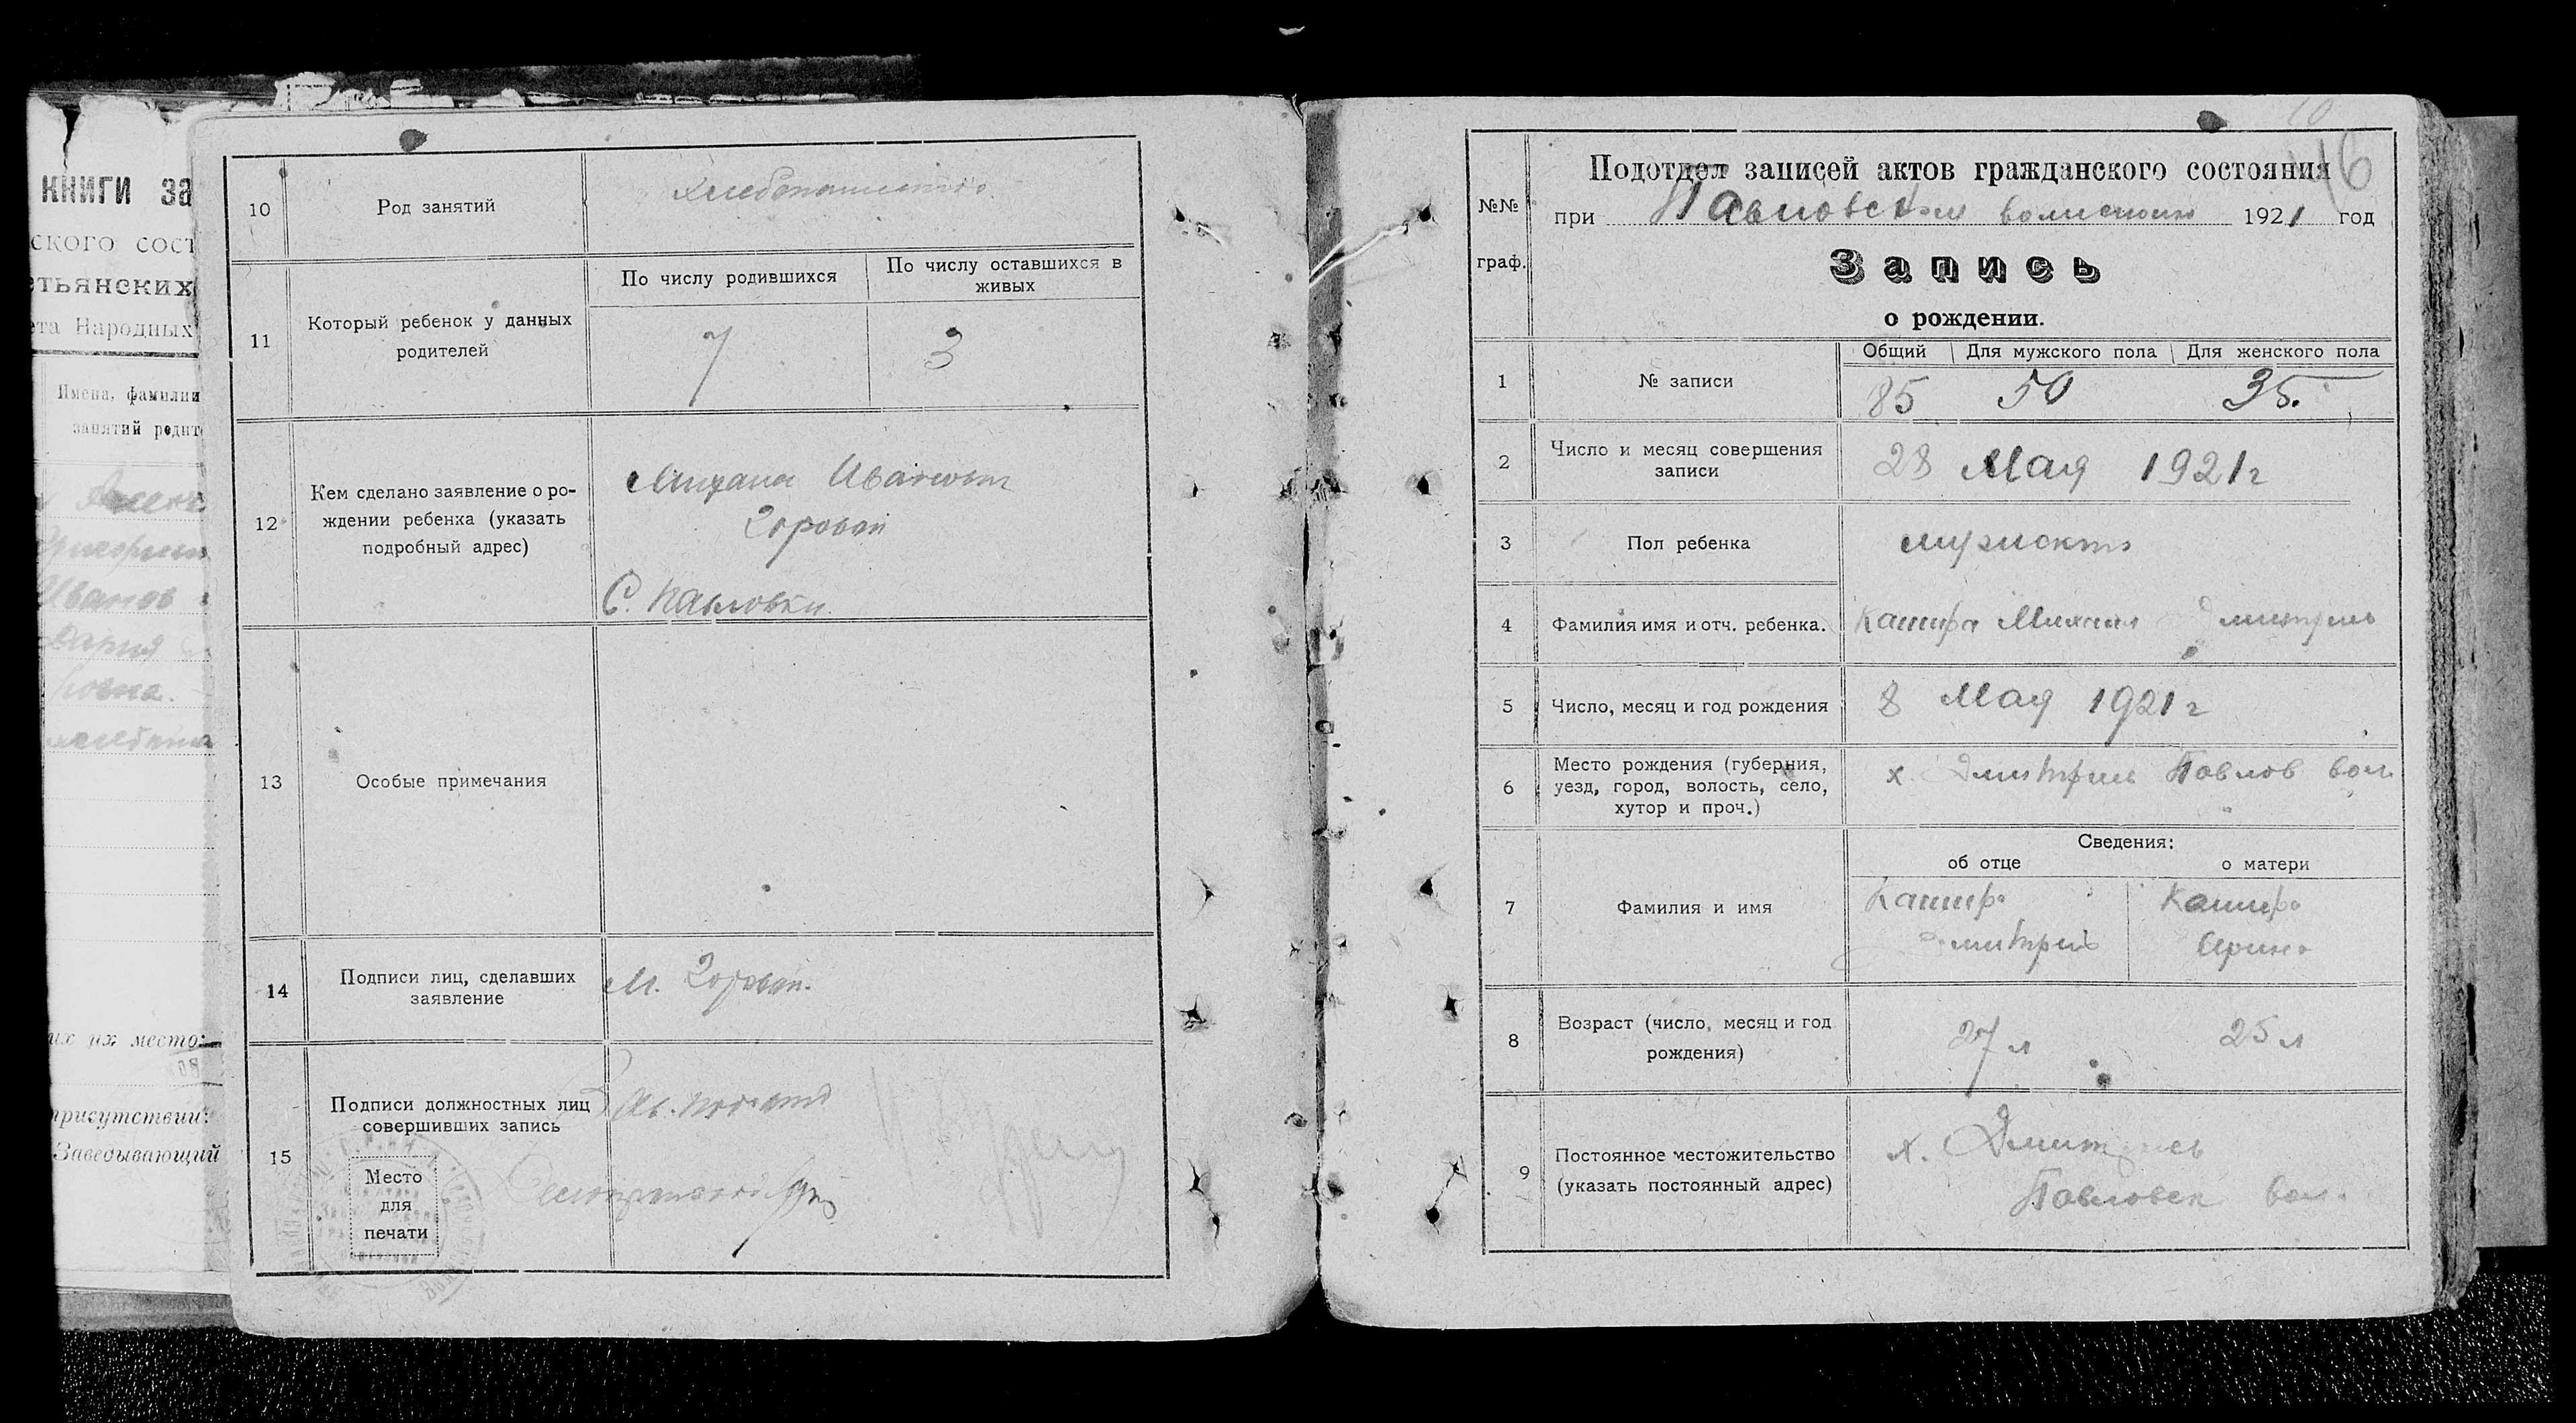 КНИГИ ЗА
ского сост
тьянских
ета Народных
Имена, фамилии
занятий родит
Иванов
Дария
10 Род занятий
11 Который ребенок у данных
родителей
По числу родившихся
По числу оставшихся в
живых
7 3
12 Кем сделано заявление о ро-
ждении ребенка (указать
подробный адрес)
Иванович
Горовой
С. Павловки
13 Особые примечания
14 Подписи лиц, сделавших
заявление
М. Горовой.
15 Подписи должностных лиц
совершивших запись
Место
для
печати
их их место:
присутствии:
Заведывающий
46
№№
граф.
Подотдел записей актов гражданского состояния
при Павловском волисполк 1921 год
Запись
о рождении.
1 № записи
Общий Для мужского пола Для женского пола
85 50 35.
2 Число и месяц совершения
записи
28 Мая 1921 г
3 Пол ребенка
4 Фамилия имя и отч. ребенка. Кашира Михаил Дмитриев
5 Число, месяц и год рождения 8 Мая 1921 г
6 Место рождения (губерния,
уезд, город, волость, село,
хутор и проч.)
х. Дмитриев Павлов вол.
Сведения:
об отце о матери
7 Фамилия и имя
Кашира Кашира
Дмитрий Арина
8 Возраст (число, месяц и год
рождения)
27 л 25 л
9 Постоянное местожительство
(указать постоянный адрес)
х. Дмитриев
Павловск вол.